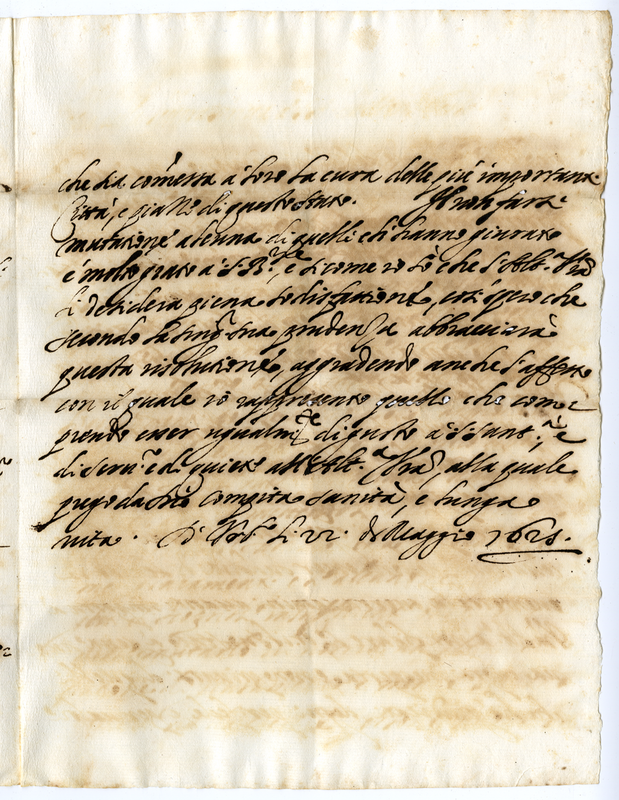 che sia com̃essa à loro la cura delle più importanti
Città, e piazze di questo stato. Il non fare
mutatione alcuna di quelli ch'hanno giurato
è molto grato à S. B.ne, e si come io sò che l'Alt.a Vra
li desidera piena sodisfatione, così spero che
secondo la sing.r sua prudenza abbraccierà
questa risolutione, aggradendo anche l'affetto
con il quale io rappresento quello che com=
prendo esser ugualm.te di gusto à S. Sant.tà, e
di serv.o e di quiete all'Alt.a Vra, alla quale
prego da Dio compita sanità, e lunga
vita. Di li VI. di Maggio 1624.